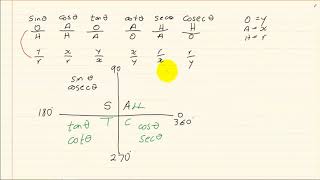 sinθ cosθ tanθ cotθ secθ cosecθ O = y
O/H A/H O/A A/O H/A H/O A = x
H = r
y/r x/r y/x x/y r/x r/y
90°
sinθ
cosecθ
180° S ALL 0
T C 360°
tanθ cosθ
cotθ secθ
270°